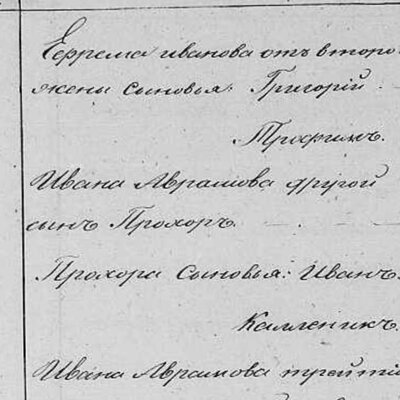 Ефрема иванова отъ второ
жены сыновья: Григорій
Трофимъ.
Ивана Аврамова другой
сынъ Прохоръ.
Прохора Сыновья: Иванъ.
Калленикъ.
Ивана Аврамова третій